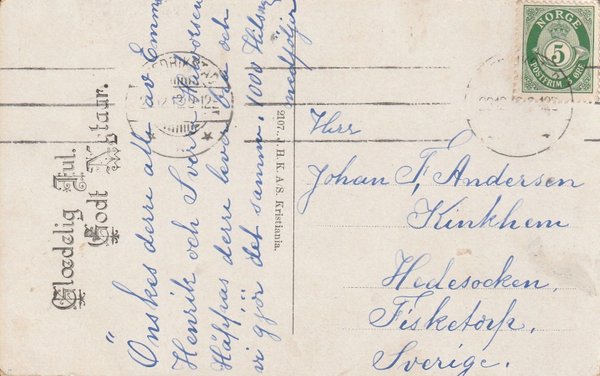 Glædelig Jul.
Godt Nytaar.
Önskes derre alla av Emma
Henrik och Sven
Håppas derre lever bra och
vi gjör det samma. 1000 Hilsn
medföljer
2107. J. H. K. A/S. Kristiania.
NORGE
5
POSTFRIM. 5 ØRE
Herr
Johan F. Andersen
Kinkhem
Hedesocken,
Fisketorp.
Sverige.